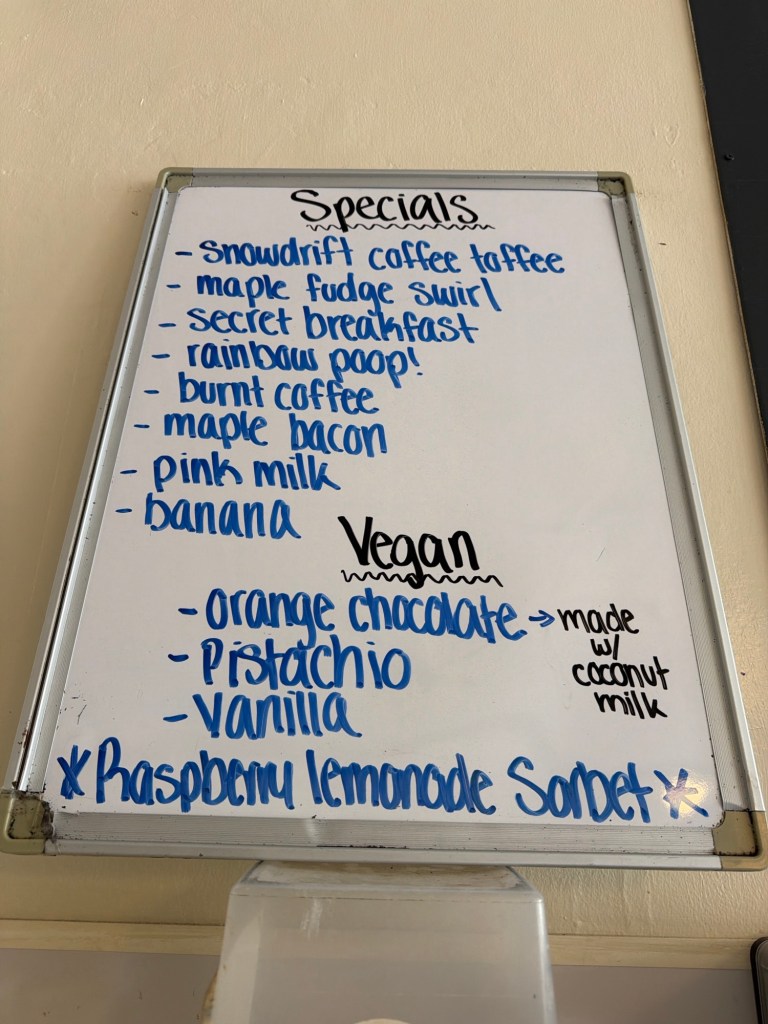 Specials
- snowdrift coffee toffee
- maple fudge swirl
- secret breakfast
- rainbow poop!
- burnt coffee
- maple bacon
- pink milk
- banana
Vegan
- orange chocolate → made w/ coconut milk
- Pistachio
- vanilla
* Raspberry lemonade Sorbet *